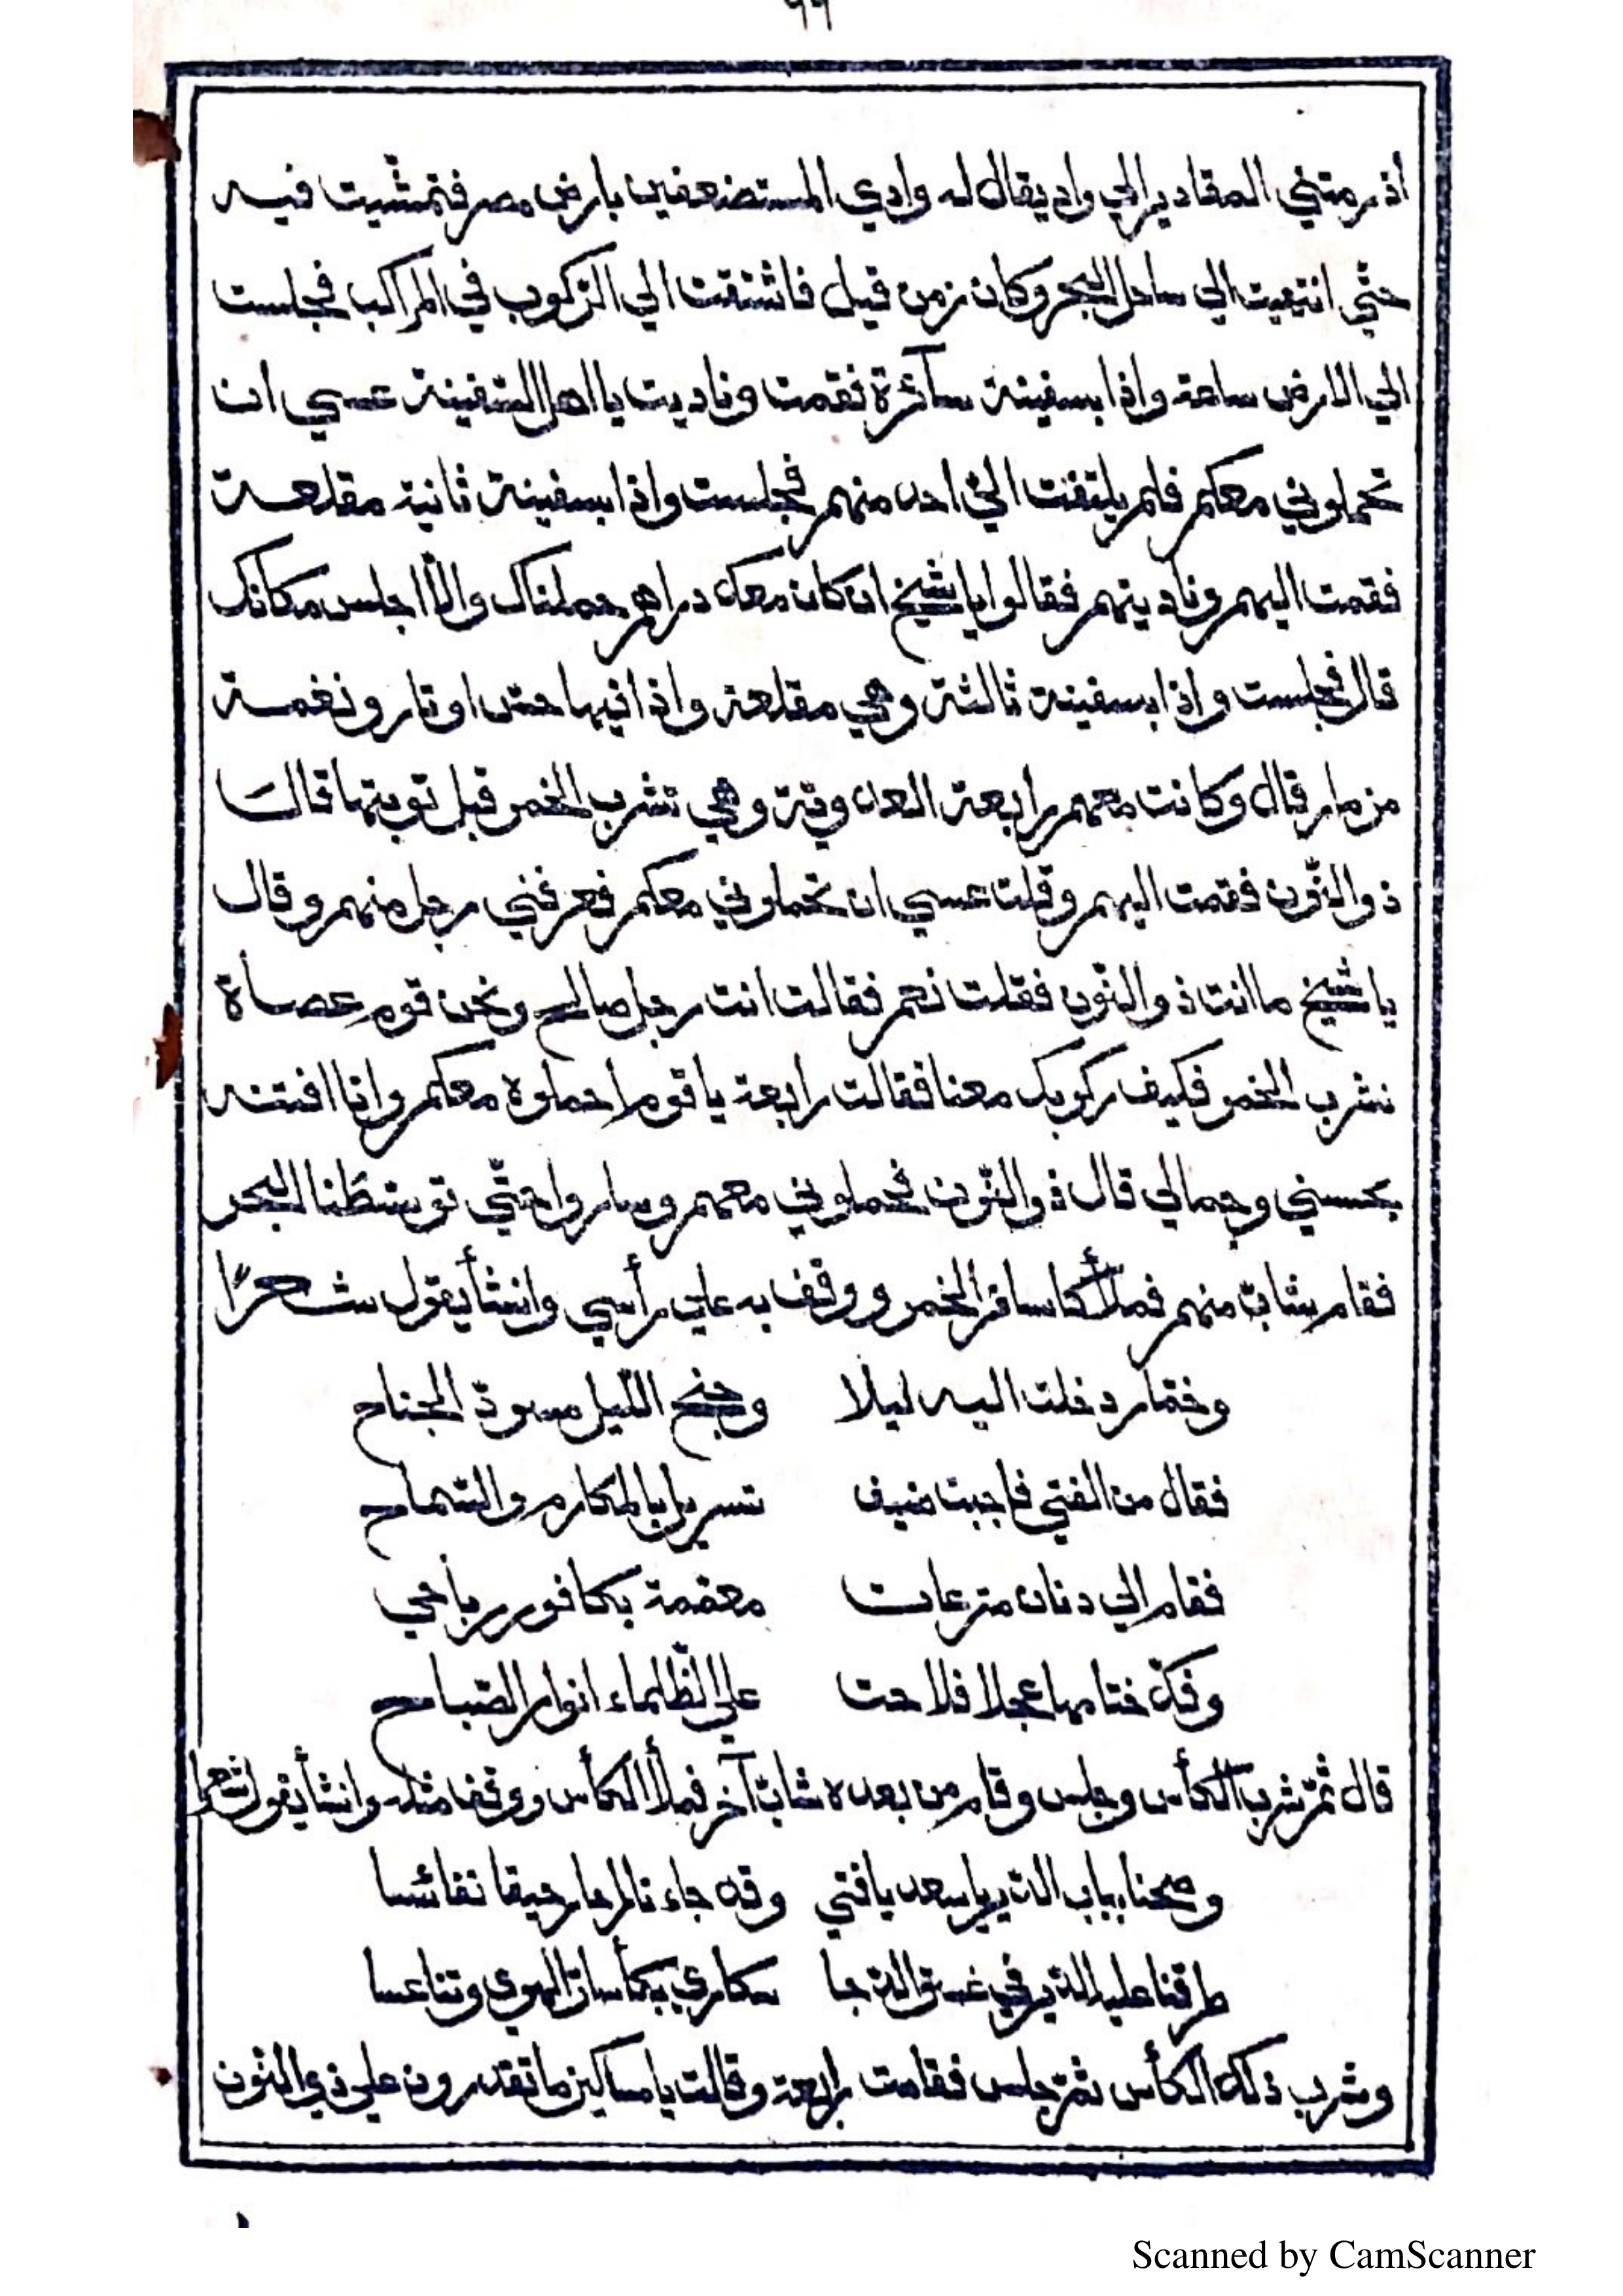 ٦٦
اذ رمتني المقادير الي واد يقال له وادي المستضعفين بارض مصر فتمشّيت فيه
حتّي انتهيت الي ساحل البحر وكان زمن قيل فاشتقت الي الرّكوب في المراكب فجلست
الي الارض ساعة واذا بسفينة سآئرة فقمت وناديت يا اهل السّفينة عسي ان
تحملوني معكم فلم يلتفت اليّ احد منهم فجلست واذا بسفينة ثانية مقلعة
فقمت اليهم وناديتهم فقالوا يا شيخ ان كان معك دراهم حملناك والّا اجلس مكانك
قال فجلست واذا بسفينة ثالثة وهي مقلعة واذا فيها حسّ اوتار ونغمة
مزمار قال وكانت معهم رابعة العدويّة وهي تشرب الخمر قبل توبتها قال
ذو النّون فقمت اليهم وقلت عسي ان تحملوني معكم فعرفني رجل منهم وقال
يا شيخ ما انت ذو النّون فقلت نعم فقالت انت رجل صالح ونحن قوم عصاة
نشرب الخمر فكيف ركوبك معنا فقالت رابعة يا قوم احملوه معكم وانا افتنه
بحسني وجمالي قال ذو النّون فحملوني معهم وساروا حتّي توسّطنا البحر
فقام شابّ منهم فملأ كاسا من الخمر ووقف به علي رأسي وانشأ يقول شعرًا
وخمّار دخلت اليه ليلا وجنح اللّيل مسودّ الجناح
فقال من الفتي فاجبت ضيف تسربل بالمكارم والسّماح
فقام الي دنان مترعات معمّمة بكافور رباحي
وفكّ ختامها عجلا فلاحت علي الظّلماء انوار الصّباح
قال ثمّ شرب الكأس وجلس وقام من بعده شابّ آخر فملأ الكأس ووقف مثله وانشأ يقول شعرا
وصحنا بباب الدّير يا سعد يا فتي وقد جاءنا رحيقا نفائسا
طرقنا عليه الدّير في غسق الدّجا سكاري بكأسات الهوي وتناعسا
وشرب ذلك الكأس ثمّ جلس فقامت رابعة وقالت يا مساكين ما تقدرون علي ذي النّون
Scanned by CamScanner